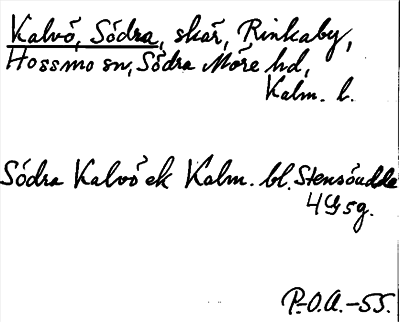 Kalvö, Södra, skär, Rinkaby,
Hossmo sn, Södra Möre hd,
Kalm. l.
Södra Kalvö ek Kalm. bl. Stensöudde
4G5g.
P.-O.A.-55.